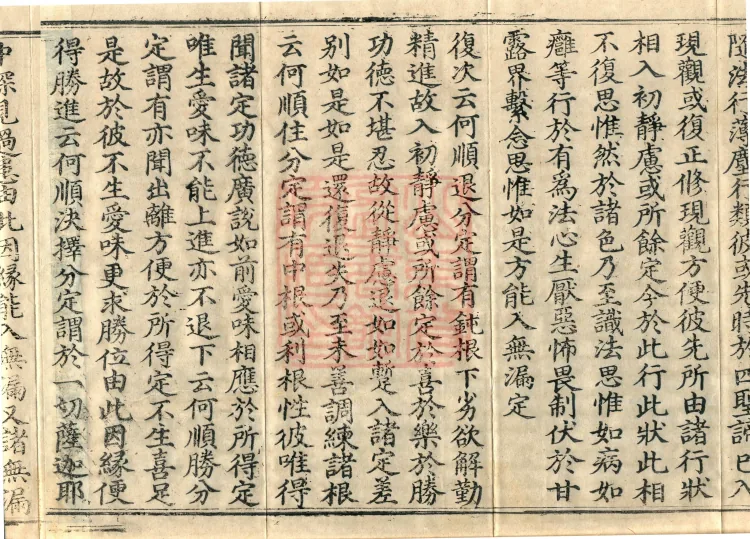 隨法行薄塵行類彼或先時於四聖諦已入
現觀或復正修現觀方便彼先所由諸行狀
相入初靜慮或所餘定今於此行此狀此相
不復思惟然於諸色乃至識法思惟如病如
癰等行於有爲法心生厭惡怖畏制伏於甘
露界繫念思惟如是方能入無漏定
復次云何順退分定謂有鈍根下劣欲解勤
精進故入初靜慮或所餘定於喜於樂於勝
功德不堪忍故從靜慮退如如暫入諸定差
別如是如是還復退失乃至未善調練諸根
云何順住分定謂有中根或利根性彼唯得
聞諸定功德廣說如前愛味相應於所得定
唯生愛味不能上進亦不退下云何順勝分
定謂有亦聞出離方便於所得定不生喜足
是故於彼不生愛味更求勝位由此因緣便
得勝進云何順決擇分定謂於一切薩迦耶
中深見過患由此因緣能入無漏又諸無漏